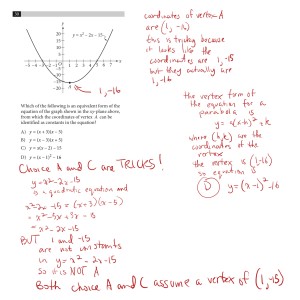 30
y
y = x² − 2x − 15
20
15
10
5
x
1, -16
Which of the following is an equivalent form of the
equation of the graph shown in the xy-plane above,
from which the coordinates of vertex A can be
identified as constants in the equation?
A) y = (x + 3)(x − 5)
B) y = (x − 3)(x + 5)
C) y = x(x − 2) − 15
D) y = (x − 1)² − 16
Choice A and C are TRICKS!
y = x² - 2x - 15
is a quadratic equation and
x² - 2x - 15 = (x+3)(x-5)
= x² - 2x - 15
BUT 1 and -15
are not constants
in y = x² - 2x - 15
so it is NOT A
Both choice A and C assume a vertex of (1, -15)
coordinates of vertex A
are (1, -16)
this is tricky because
it looks like the
coordinates are 1, -15
but they actually are
1, -16
the vertex form of
the equation for a
parabola is
y = a(x-h)² + k
where (h,k) are the
coordinates of the
vertex
the vertex is (1, -16)
so equation is
D y = (x-1)² - 16